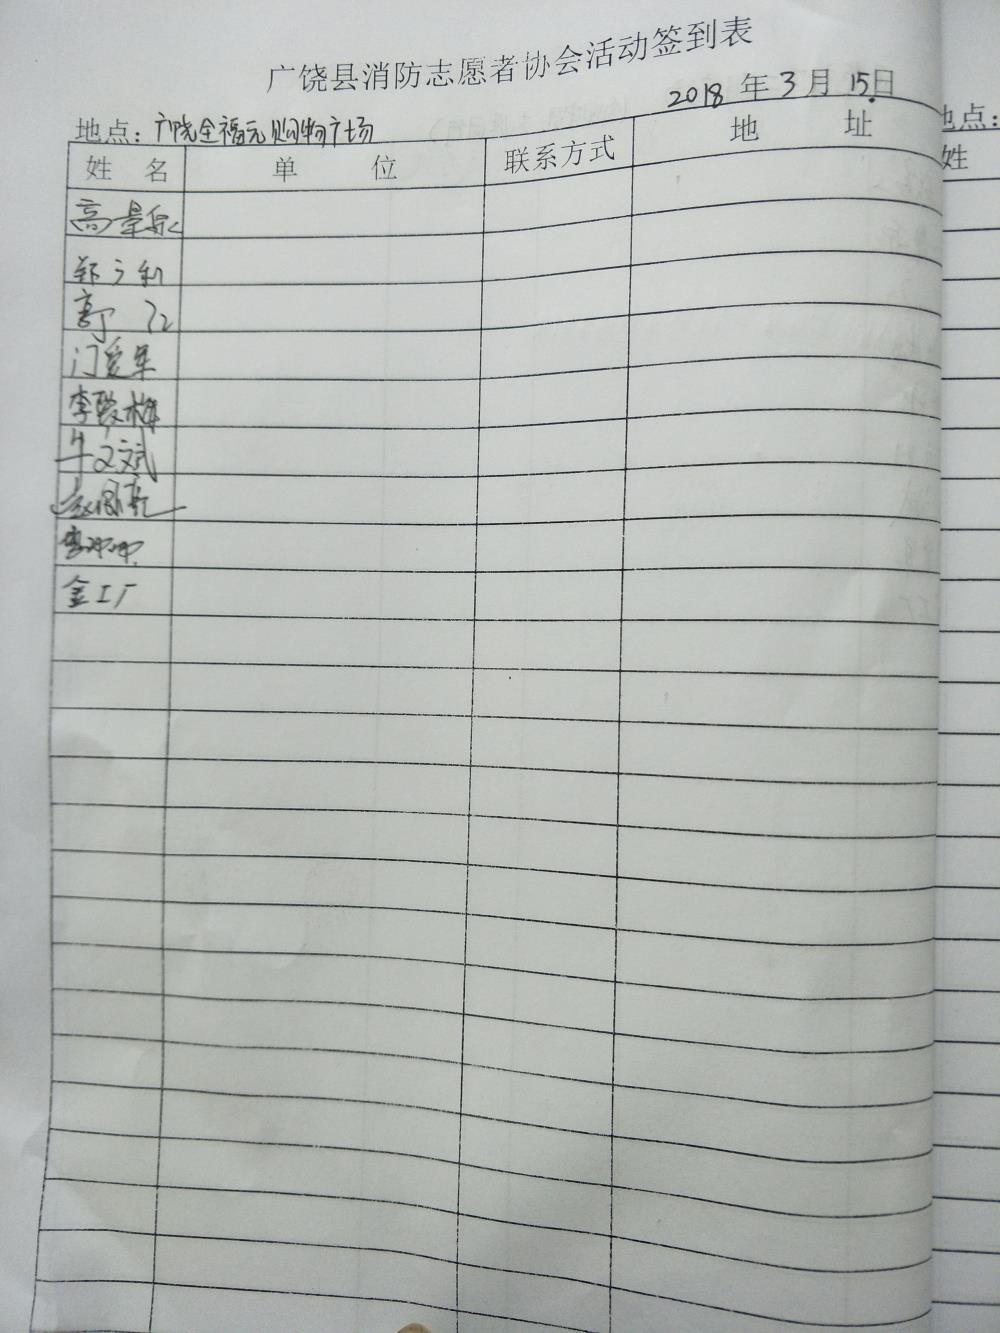 广饶县消防志愿者协会活动签到表
2018 年 3 月 15日
地点：广饶全福元购物广场
姓 名 单 位 联系方式 地 址
高景泉
郑立利
门爱军
李聪梅
牛文斌
金工厂
地点：
姓